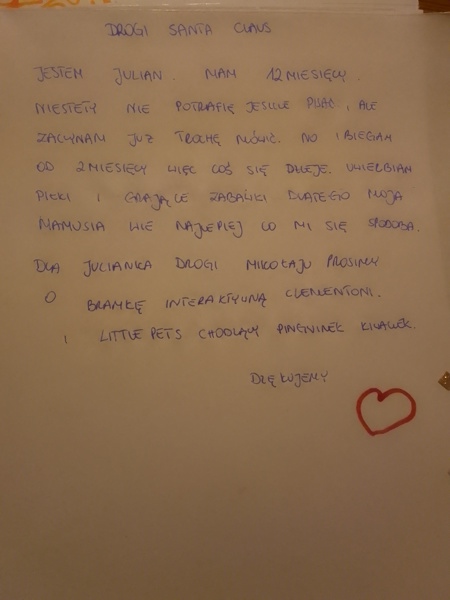 DROGI SANTA CLAUS
JESTEM JULIAN. MAM 12 MIESIĘCY.
NIESTETY NIE POTRAFIĘ JESZCZE PISAĆ, ALE
ZACZYNAM JUŻ TROCHĘ MÓWIĆ. NO I BIEGAM
OD 2 MIESIĘCY WIĘC COŚ SIĘ DZIEJE. UWIELBIAM
PIŁKI I GRAJĄCE ZABAWKI DLATEGO MOJA
MAMUSIA WIE NAJLEPIEJ CO MI SIĘ SPODOBA.
DLA JULIANKA DROGI MIKOŁAJU PROSIMY
O BRAMKĘ INTERAKTYWNĄ CLEMENTONI.
I LITTLE PETS CHODZĄCY PINGWINEK KIWACZEK.
DZIĘKUJEMY